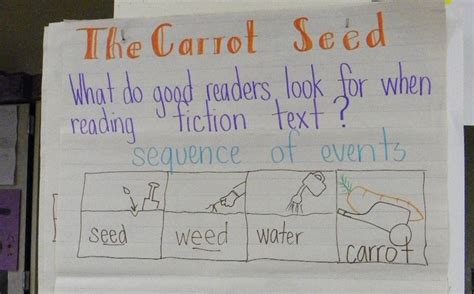 The Carrot Seed
What do good readers look for when
reading fiction text?
sequence of events
seed weed water carrot